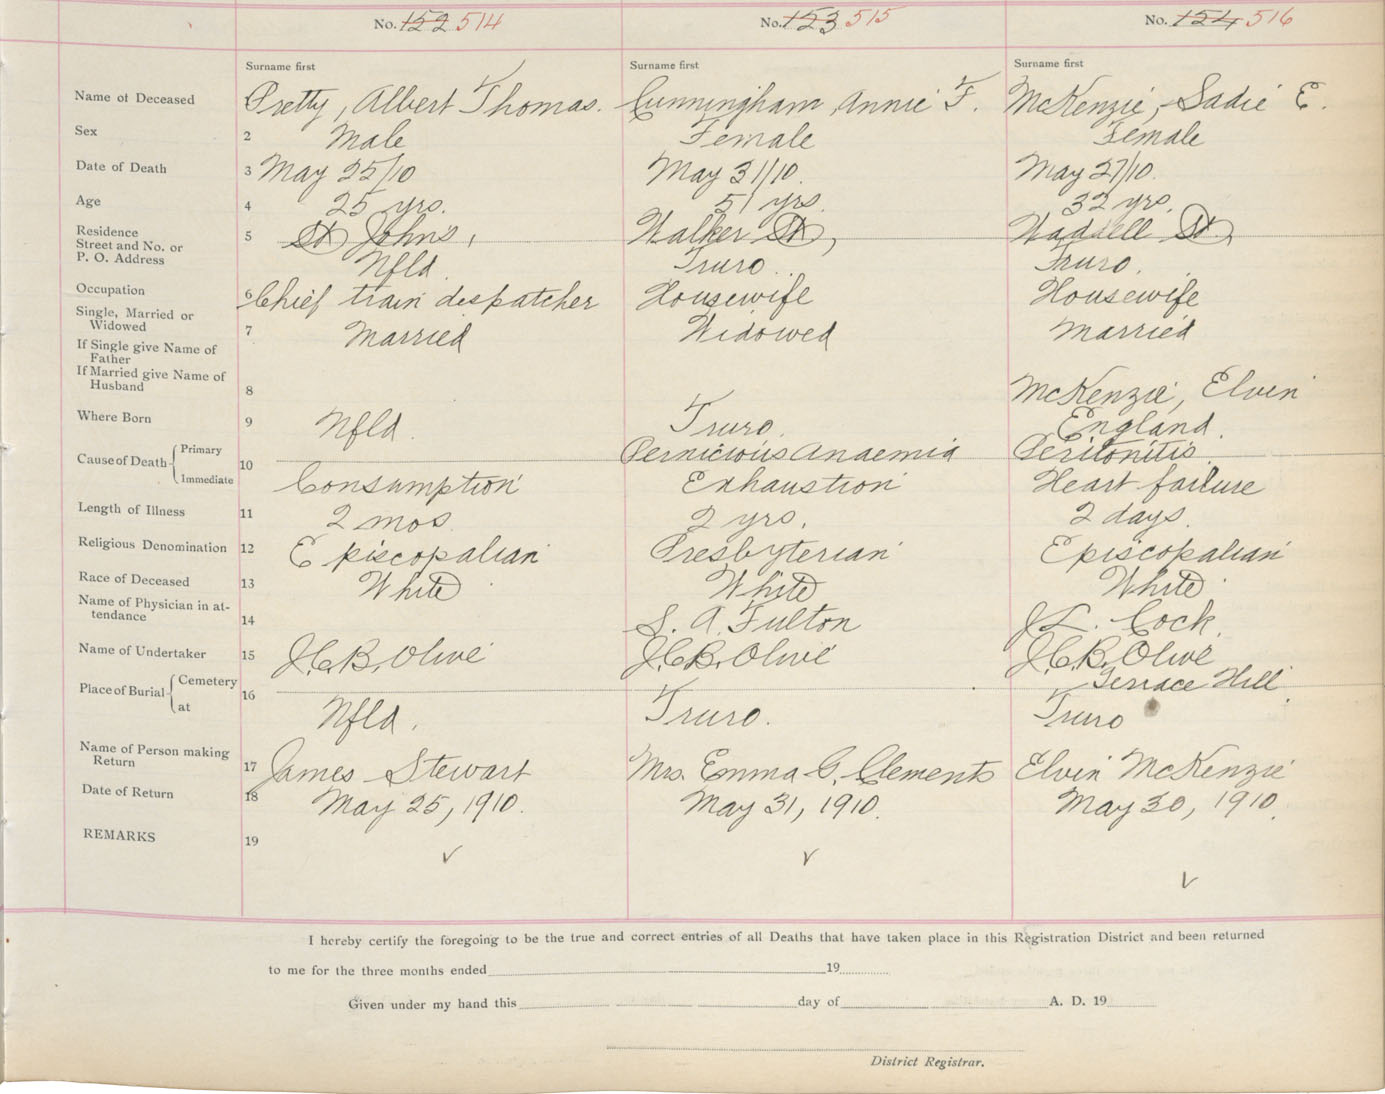 No. 152 514 No. 153 515 No. 154 516
Surname first Surname first Surname first
Name of Deceased Pretty, Albert Thomas. Cunningham, Annie F. McKenzie, Sadie E.
Sex 2 Male Female Female
Date of Death 3 May 25/10 May 31/10. May 27/10.
Age 4 25 yrs. 51 yrs. 32 yrs.
Residence 5 St Johns, Walker St, Waddell St,
Street and No. or
P. O. Address Nfld. Truro. Truro.
Occupation 6 Chief train despatcher Housewife Housewife
Single, Married or
Widowed 7 Married Widowed Married
If Single give Name of
Father
If Married give Name of
Husband 8 McKenzie, Elvin
Where Born 9 Nfld. Truro. England.
Cause of Death Primary 10 Pernicious Anaemia Peritonitis
Immediate Consumption Exhaustion Heart failure
Length of Illness 11 2 mos. 2 yrs. 2 days.
Religious Denomination 12 Episcopalian Presbyterian Episcopalian
Race of Deceased 13 White White White
Name of Physician in at-
tendance 14 S. A. Fulton J. L. Cock.
Name of Undertaker 15 J.C.B. Olive J.C.B. Olive J.C.B. Olive
Place of Burial Cemetery 16 Terrace Hill.
at Nfld. Truro. Truro
Name of Person making
Return 17 James Stewart Mrs. Emma G. Clements Elvin McKenzie
Date of Return 18 May 25, 1910. May 31, 1910. May 30, 1910.
REMARKS 19
I hereby certify the foregoing to be the true and correct entries of all Deaths that have taken place in this Registration District and been returned
to me for the three months ended 19
Given under my hand this day of A. D. 19
District Registrar.